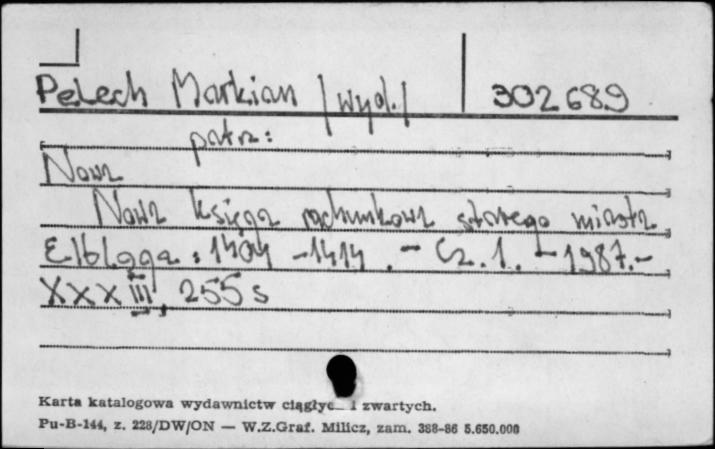 Pelech Markian /wyd./ 302689
patrz:
Nowa
Nowa księga rachunkowa starego miasta
Elbląga : 1404 -1414 . - Cz. 1. - 1987.-
XXXIII, 255 s
Karta katalogowa wydawnictw ciągłyc_ i zwartych.
Pu-B-144, z. 228/DW/ON — W.Z.Graf. Milicz, zam. 388-86 5.650.000